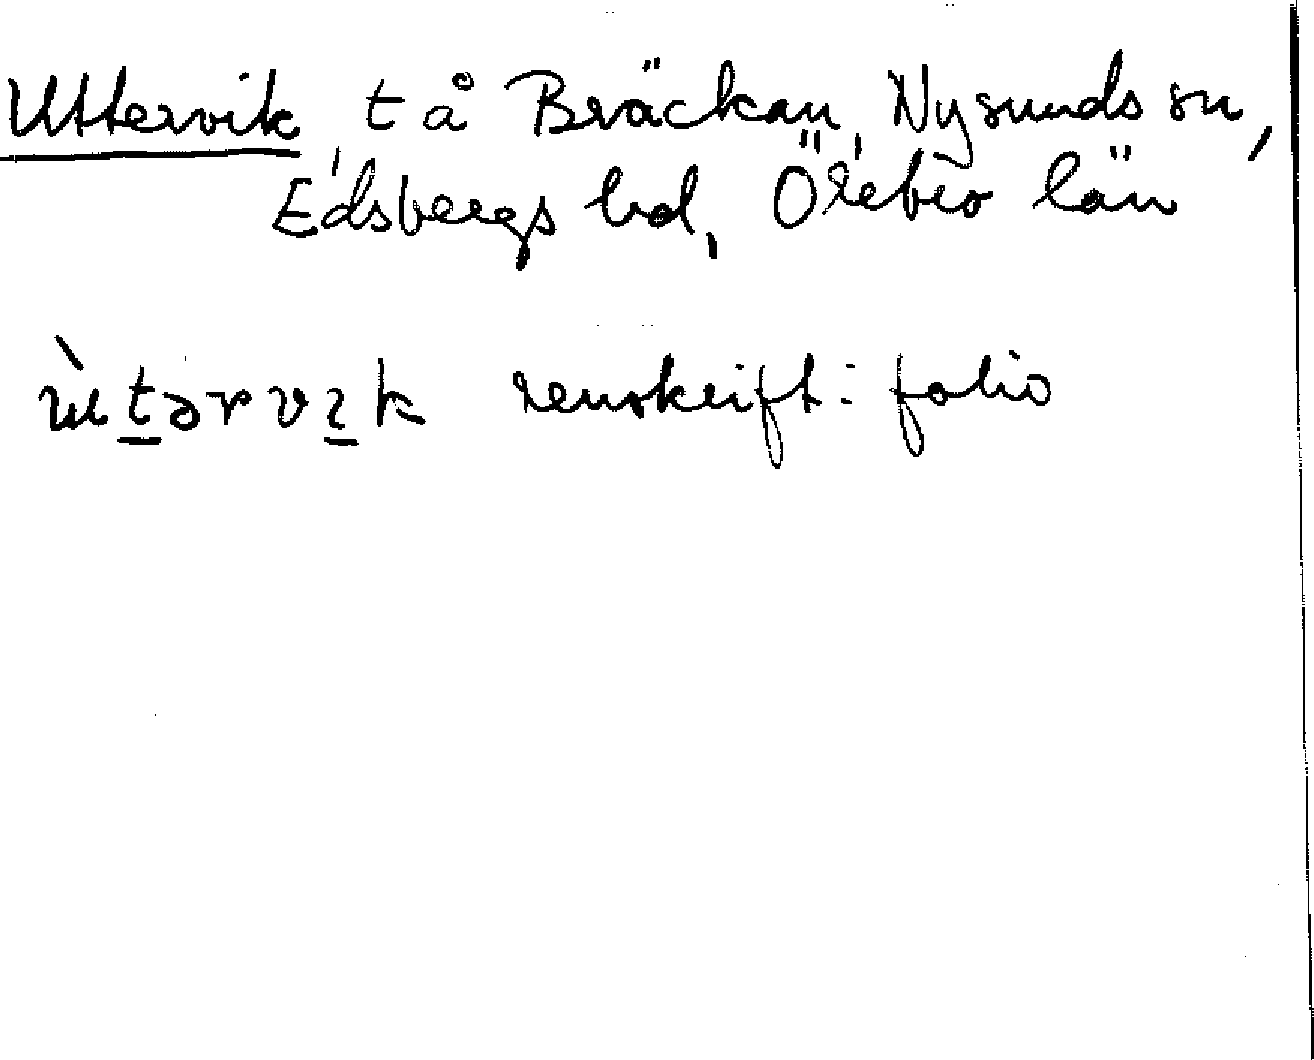 Uttervik, tå Bräckan, Nysunds sn,
Edsbergs hd, Örebro län
renskrift: folio